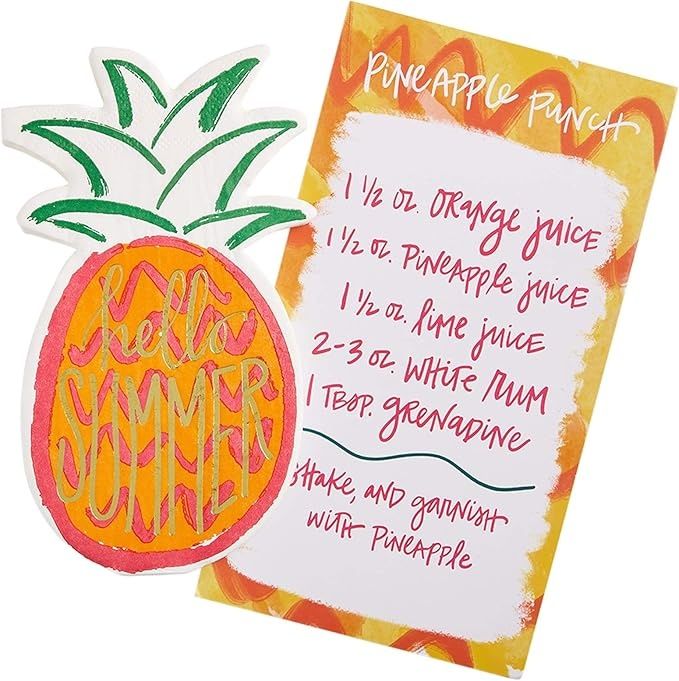 hello
SUMMER
PINEAPPLE PUNCH
1 1/2 oz. ORANGE JUICE
1 1/2 oz. PINEAPPLE JUICE
1 1/2 oz. lime JUICE
2-3 oz. WHITE RUM
1 TBSP. GRENADINE
SHAKE, AND GARNISH
WITH PINEAPPLE